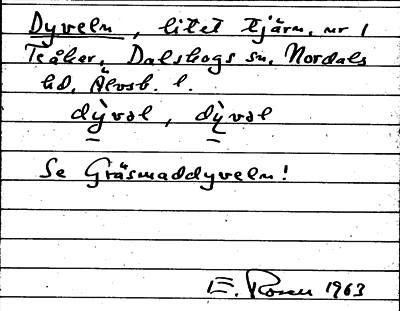 Dyveln, litet tjärn, nr 1
Teåker, Dalskogs sn, Nordals
hd, Älvsb. l.
dỳvəl, dỳvəl
Se Gräsmaddyveln!
E. Rosén 1963